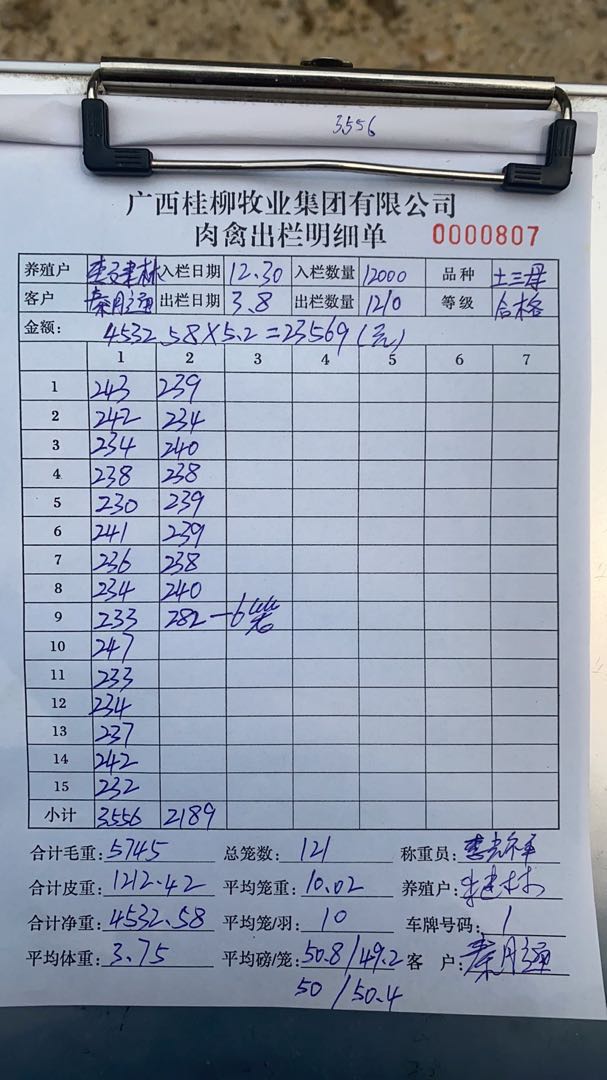 3556
广西桂柳牧业集团有限公司
肉禽出栏明细单 0000807
养殖户 李建林 入栏日期 12.30 入栏数量 12000 品种 土三母
客户 秦月通 出栏日期 3.8 出栏数量 1210 等级 合格
金额: 4532.58×5.2=23569(元)
1 2 3 4 5 6 7
1 243 239
2 242 234
3 234 240
4 238 238
5 230 239
6 241 239
7 236 238
8 234 240
9 233 282-6笼
10 247
11 233
12 234
13 237
14 242
15 232
小计 3556 2189
合计毛重:5745 总笼数:121 称重员:
合计皮重:1212.42 平均笼重:10.02 养殖户:李建林
合计净重:4532.58 平均笼/羽:10 车牌号码:1
平均体重:3.75 平均磅/笼:50.8/49.2 客户:秦月通
50/50.4